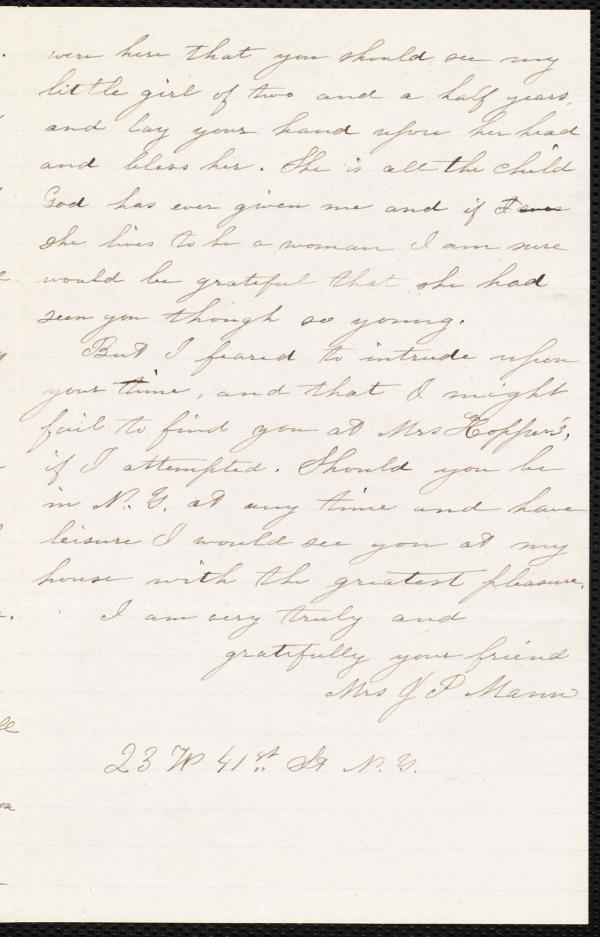 were here that you should see my
little girl of two and a half years,
and lay your hand upon her head
and bless her. She is all the child
God has ever given me and if I ever
she lives to be a woman I am sure
would be grateful that she had
seen you though so young.
But I feared to intrude upon
your time, and that I might
fail to find you at Mrs Hopper's,
if I attempted. Should you be
in N. Y. at any time and have
leisure I would see you at my
house with the greatest pleasure.
I am very truly and
gratefully your friend
Mrs J P Mann
23 W 41st St N. Y.